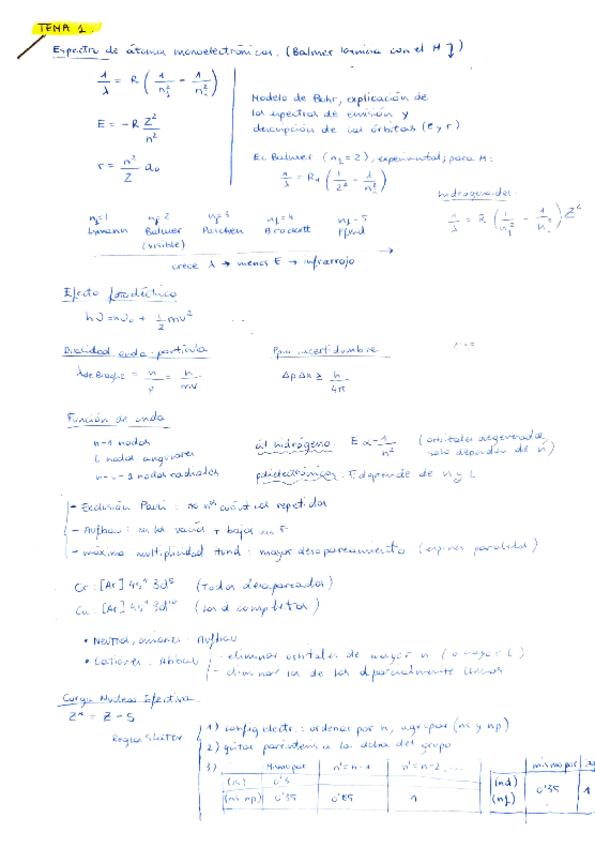 TEMA 1.
Espectro de átomos monoelectrónicos. (Balmer termina con el H)
1/λ = R (1/n₁² - 1/n₂²)
E = -R Z²/n²
r = n²/Z a₀
Modelo de Bohr, explicación de
los espectros de emisión y
descripción de las órbitas (E y r)
Ec Balmer (n₁=2), experimental; para H:
1/λ = R_H (1/2² - 1/n₂²)
hidrogenoides:
1/λ = R (1/n₁² - 1/n₂²) Z²
n₁=1 n₁=2 n₁=3 n₁=4 n₁=5
Lymann Balmer Paschen Brackett Pfund
(visible)
crece λ → menos E → infrarrojo
Efecto fotoeléctrico
hν = hν₀ + 1/2 mv²
Dualidad onda-partícula
λ de Broglie = h/p = h/mv
Ppio incertidumbre
Δp Δx ≥ h/4π
Función de onda
n-1 nodos
l nodos angulares
n-l-1 nodos radiales
át hidrógeno. E α -1/n² (orbitales degenerados, solo dependen de n)
polielectrónicos. E depende de n y l
- Exclusión Pauli: no nos cuánticos repetidos
- Aufbau: se los vacíos + bajos en E
- máxima multiplicidad Hund: mayor desapareamiento (espines paralelos)
Cr: [Ar] 4s¹ 3d⁵ (todos desapareados)
Cu: [Ar] 4s¹ 3d¹⁰ (los d completos)
• Neutros, aniones: Aufbau
• Cationes: Abbau
- eliminar orbitales de mayor n (o mayor l)
- eliminar los de los d parcialmente llenos
Carga Nuclear Efectiva
Z* = Z - S
Reglas Slater
1) config electr.: ordenar por n, agrupar (ns y np)
2) quitar paréntesis a la dcha del grupo
3)
Mismo par n'=n-1 n'=n-2, ...
(1s) 0'3
(ns np) 0'35 0'85 1
mismo par
(nd)
(nf) 0'35 1